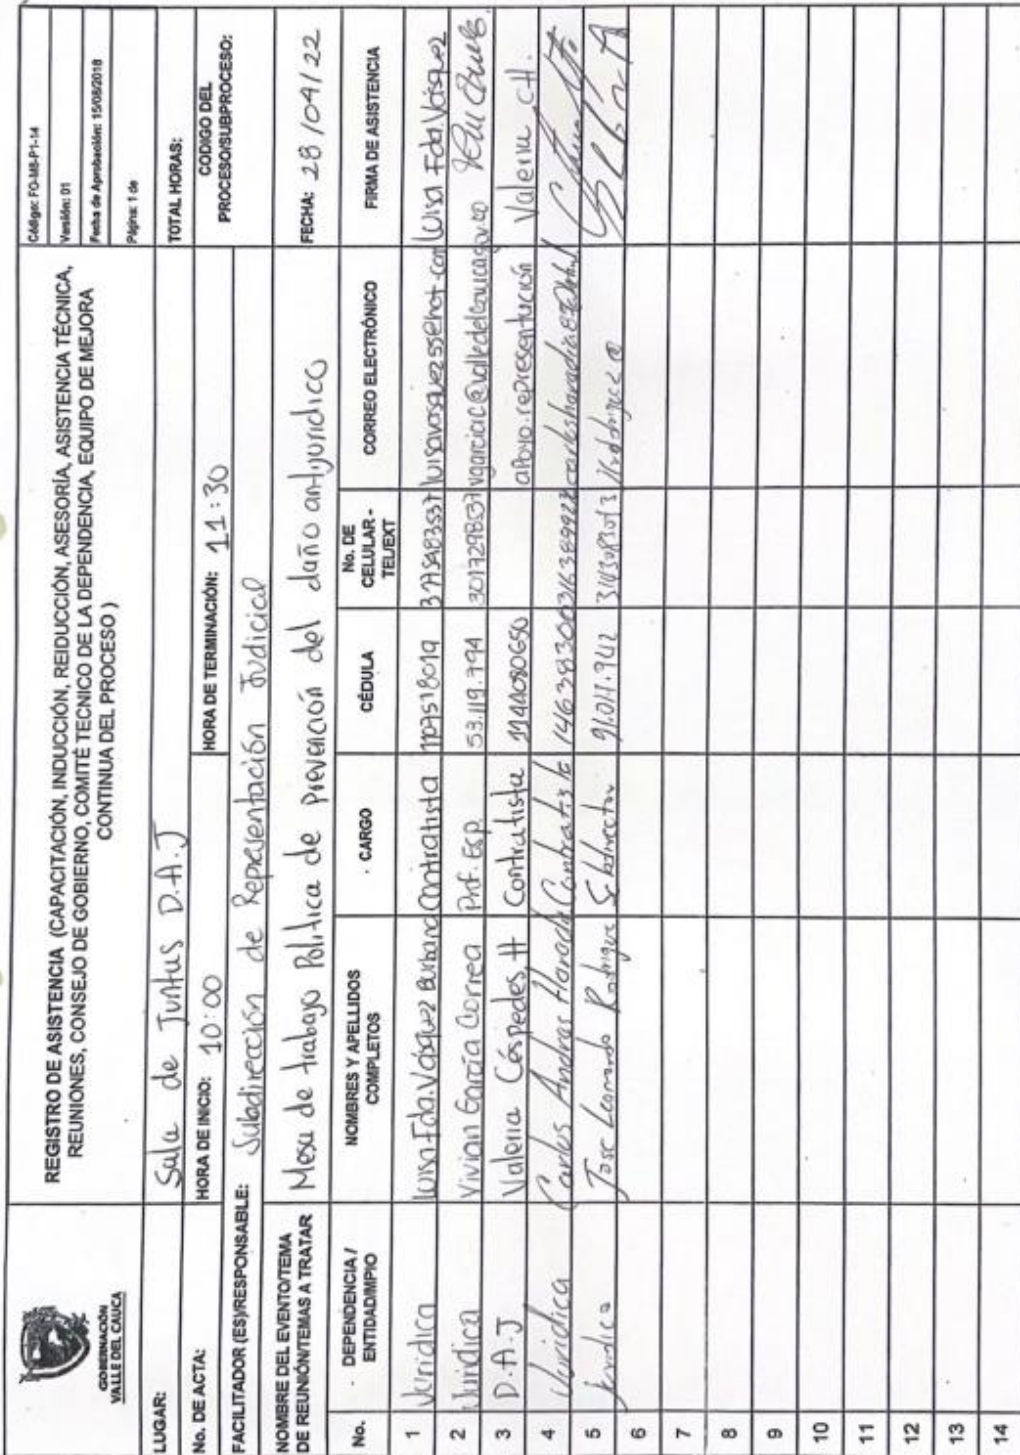 GOBERNACIÓN
VALLE DEL CAUCA
REGISTRO DE ASISTENCIA (CAPACITACIÓN, INDUCCIÓN, REIDUCCIÓN, ASESORÍA, ASISTENCIA TÉCNICA,
REUNIONES, CONSEJO DE GOBIERNO, COMITÉ TECNICO DE LA DEPENDENCIA, EQUIPO DE MEJORA
CONTINUA DEL PROCESO )
Código: FO-M8-P1-14
Versión: 01
Fecha de Aprobación: 15/08/2018
Página: 1 de
LUGAR: Sala de Juntas D.A.J
TOTAL HORAS:
No. DE ACTA:
HORA DE INICIO: 10:00
HORA DE TERMINACIÓN: 11:30
CODIGO DEL
PROCESO/SUBPROCESO:
FACILITADOR (ES)/RESPONSABLE: Subdirección de Representación Judicial
NOMBRE DEL EVENTO/TEMA
DE REUNIÓN/TEMAS A TRATAR
Mesa de trabajo Política de prevención del daño antijuridico
FECHA: 28/04/22
No. DEPENDENCIA / ENTIDAD/MPIO NOMBRES Y APELLIDOS COMPLETOS CARGO CÉDULA No. DE CELULAR - TEL/EXT CORREO ELECTRÓNICO FIRMA DE ASISTENCIA
1 Juridica Luisa Fda. Vásquez Contratista Luisa Fda Vásquez
2 Juridica Vivian García Correa Prof. Esp. 53.119.794
3 D.A.J Valeria Céspedes H Contratista 1144080650 apoyo.representación Valeria C.H.
4 Juridica Carlos Andres Contratista
5 Juridica Jose Leonardo Subdirector
6
7
8
9
10
11
12
13
14